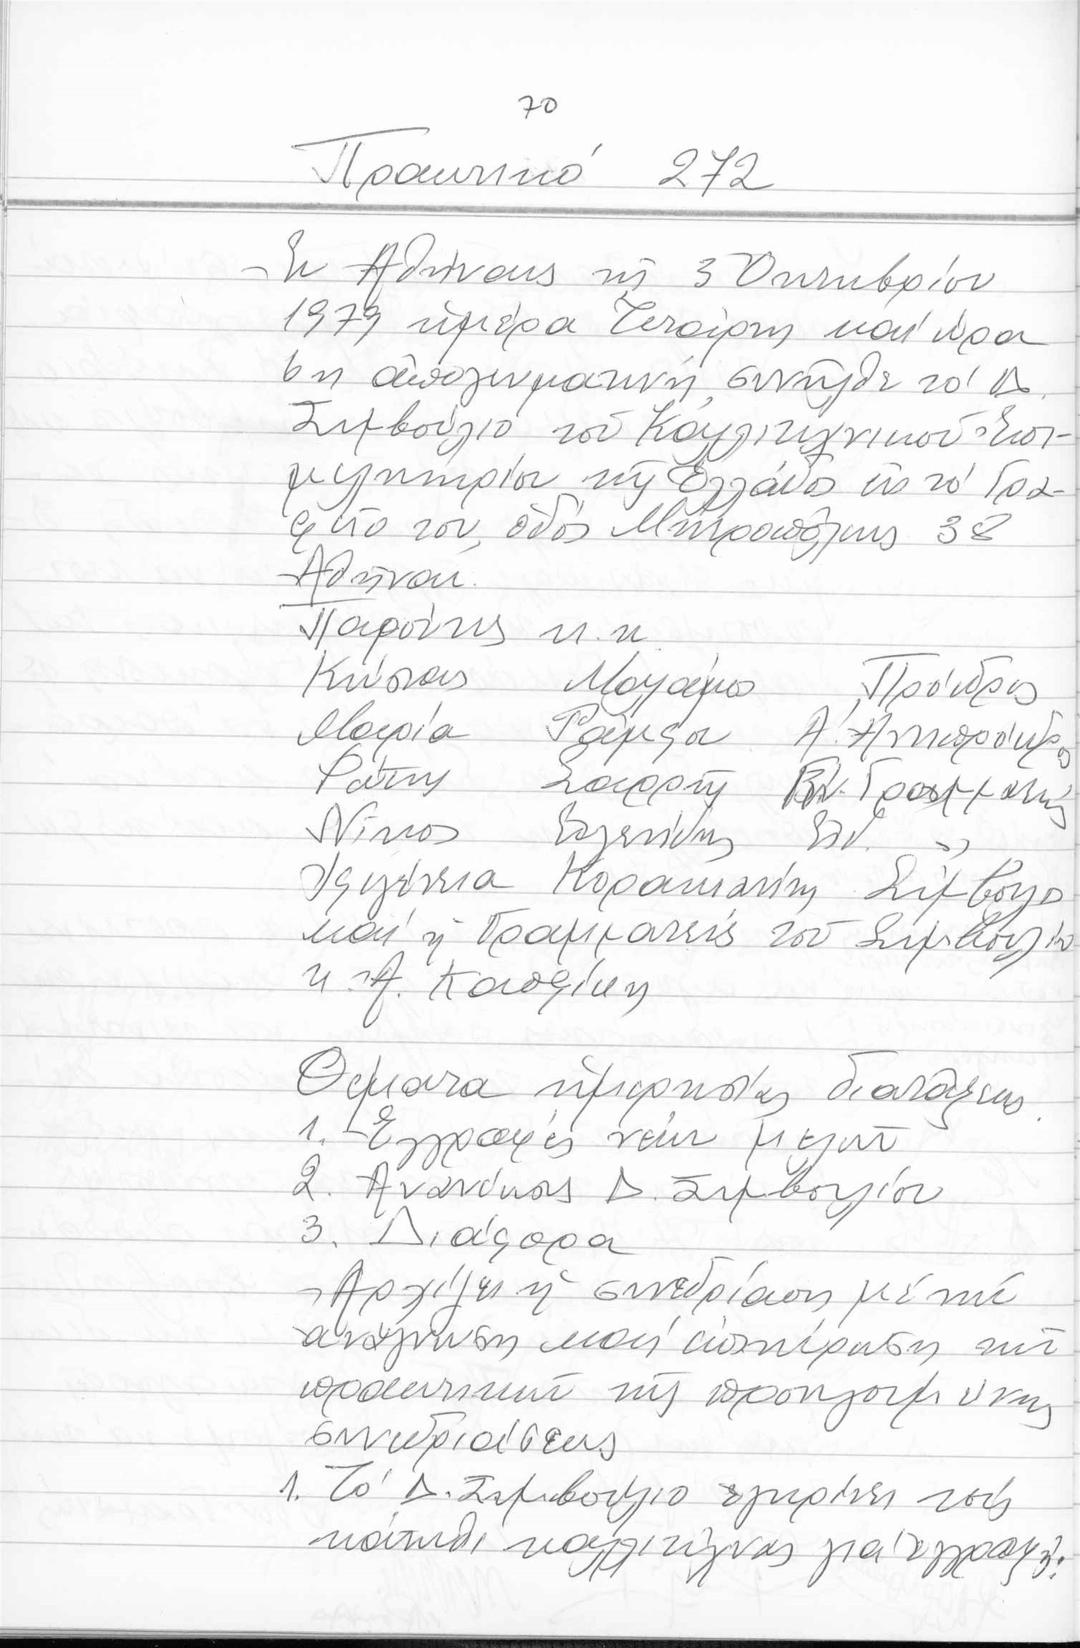 70
Πρακτικό 272
Ἐν Ἀθήναις τῇ 3 Ὀκτωβρίου
1979 ἡμέρα Τετάρτη καί ὥρα
6η ἀπογευματινή, συνῆλθε τό Δ.
Συμβούλιο τοῦ Καλλιτεχνικοῦ Ἐπι-
μελητηρίου τῆς Ἑλλάδος εἰς τό Γρα-
φεῖο του, ὁδός Μητροπόλεως 38
Ἀθῆναι.
Παρόντες κ.κ.
Κώστας Μαλάμος Πρόεδρος
Μαρία Α΄. Ἀντιπρόεδρος
Φώτης Γεν. Γραμματεύς
Νίκος Εἰδ. "
Ἰφιγένεια Σύμβουλος
καί ἡ Γραμματεύς τοῦ Συμβουλίου
κ. Α.
Θέματα ἡμερησίας διατάξεως.
1. Ἐγγραφές νέων μελῶν
2. Ἀνανέωσις Δ. Συμβουλίου
3. Διάφορα
Ἀρχίζει ἡ συνεδρίαση μέ τήν
ἀνάγνωση καί ἐπικύρωση τῶν
πρακτικῶν τῆς προηγουμένης
συνεδριάσεως
1. Τό Δ. Συμβούλιο ἐγκρίνει τούς
κάτωθι καλλιτέχνας γιά ἐγγραφή: